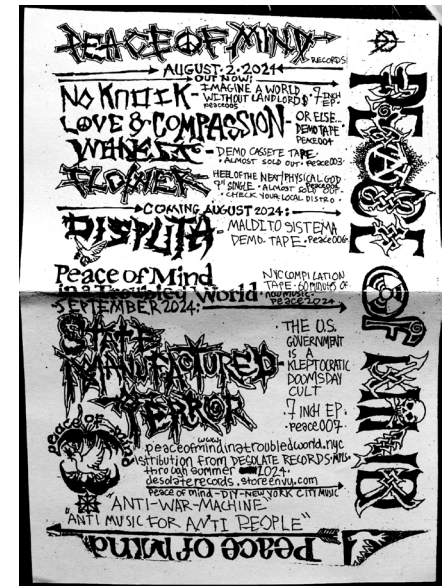 PEACE OF MIND
RECORDS
AUGUST. 2. 2024
OUT NOW:
NO KNOCK - IMAGINE A WORLD WITHOUT LANDLORDS 7 INCH EP.
peace005
LOVE & COMPASSION - OR ELSE...
DEMO TAPE.
PEACE004
DEMO CASSETE TAPE.
ALMOST SOLD OUT. peace003.
FLOWER HEEL OF THE NEXT/PHYSICAL GOD
7" SINGLE. ALMOST SOLD OUT.
CHECK YOUR LOCAL DISTRO.
COMING AUGUST 2024:
DISPUTA - MALDITO SISTEMA
DEMO TAPE. Peace006.
Peace of Mind
in a Troubled World
NYC COMPILATION
TAPE. 60 MINUTES OF
NOW MUSIC.
Peace2024
SEPTEMBER 2024:
STATE
MANUFACTURED
TERROR
THE U.S.
GOVERNMENT
IS A
KLEPTOCRATIC
DOOMSDAY
CULT
7 INCH EP.
Peace007.
peace of mind
www.
peaceofmindinatroubledworld.nyc
distribution from DESOLATE RECORDS. MPLS.
through sommer 2024
desolaterecords.storeenvy.com
Peace of mind - DIY - NEW YORK CITY MUSIC
"ANTI-WAR-MACHINE"
"ANTI MUSIC FOR ANTI PEOPLE"
Peace of Mind
PEACE OF MIND